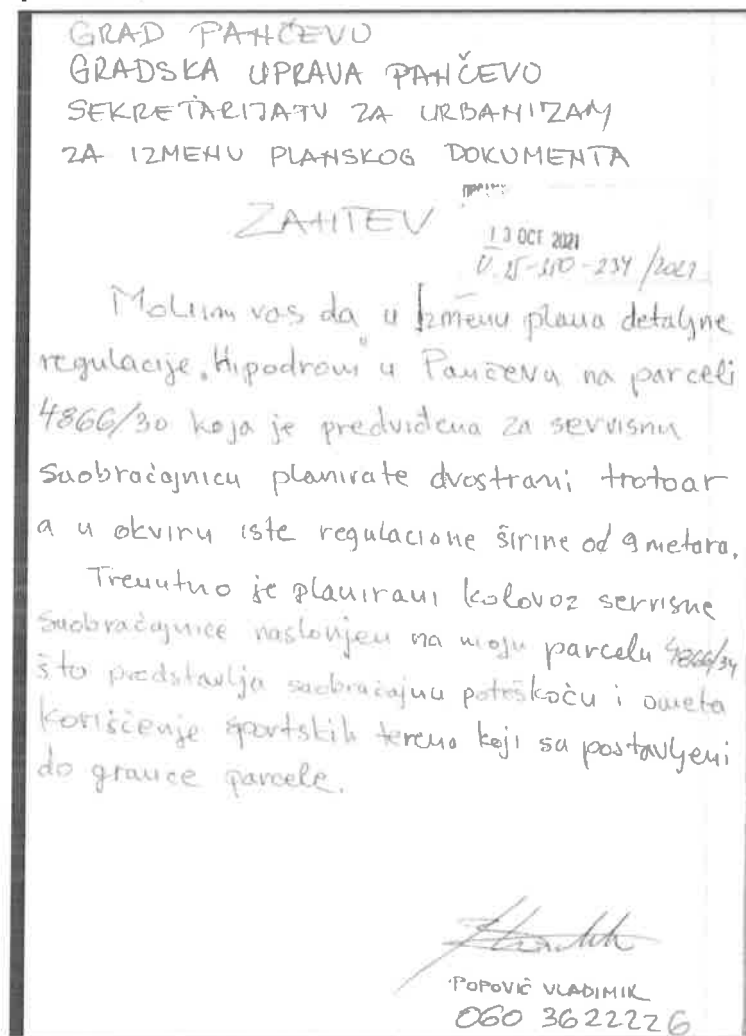 GRAD PANČEVO
GRADSKA UPRAVA PANČEVO
SEKRETARIJATU ZA URBANIZAM
ZA IZMENU PLANSKOG DOKUMENTA
ZAHTEV
13 OCT 2021
Molim vas da u Izmenu plana detaljne
regulacije "Hipodrom u Pančevu na parceli
4866/30 koja je predviđena za servisnu
saobraćajnicu planirate dvostrani trotoar
a u okviru iste regulacione širine od 9 metara.
Trenutno je planirani kolovoz servisne
saobraćajnice naslonjen na moju parcelu 4866/34
što predstavlja saobraćajnu poteškoću i ometa
korišćenje sportskih terena koji su postavljeni
do granice parcele.
POPOVIĆ VLADIMIR
060 3622226